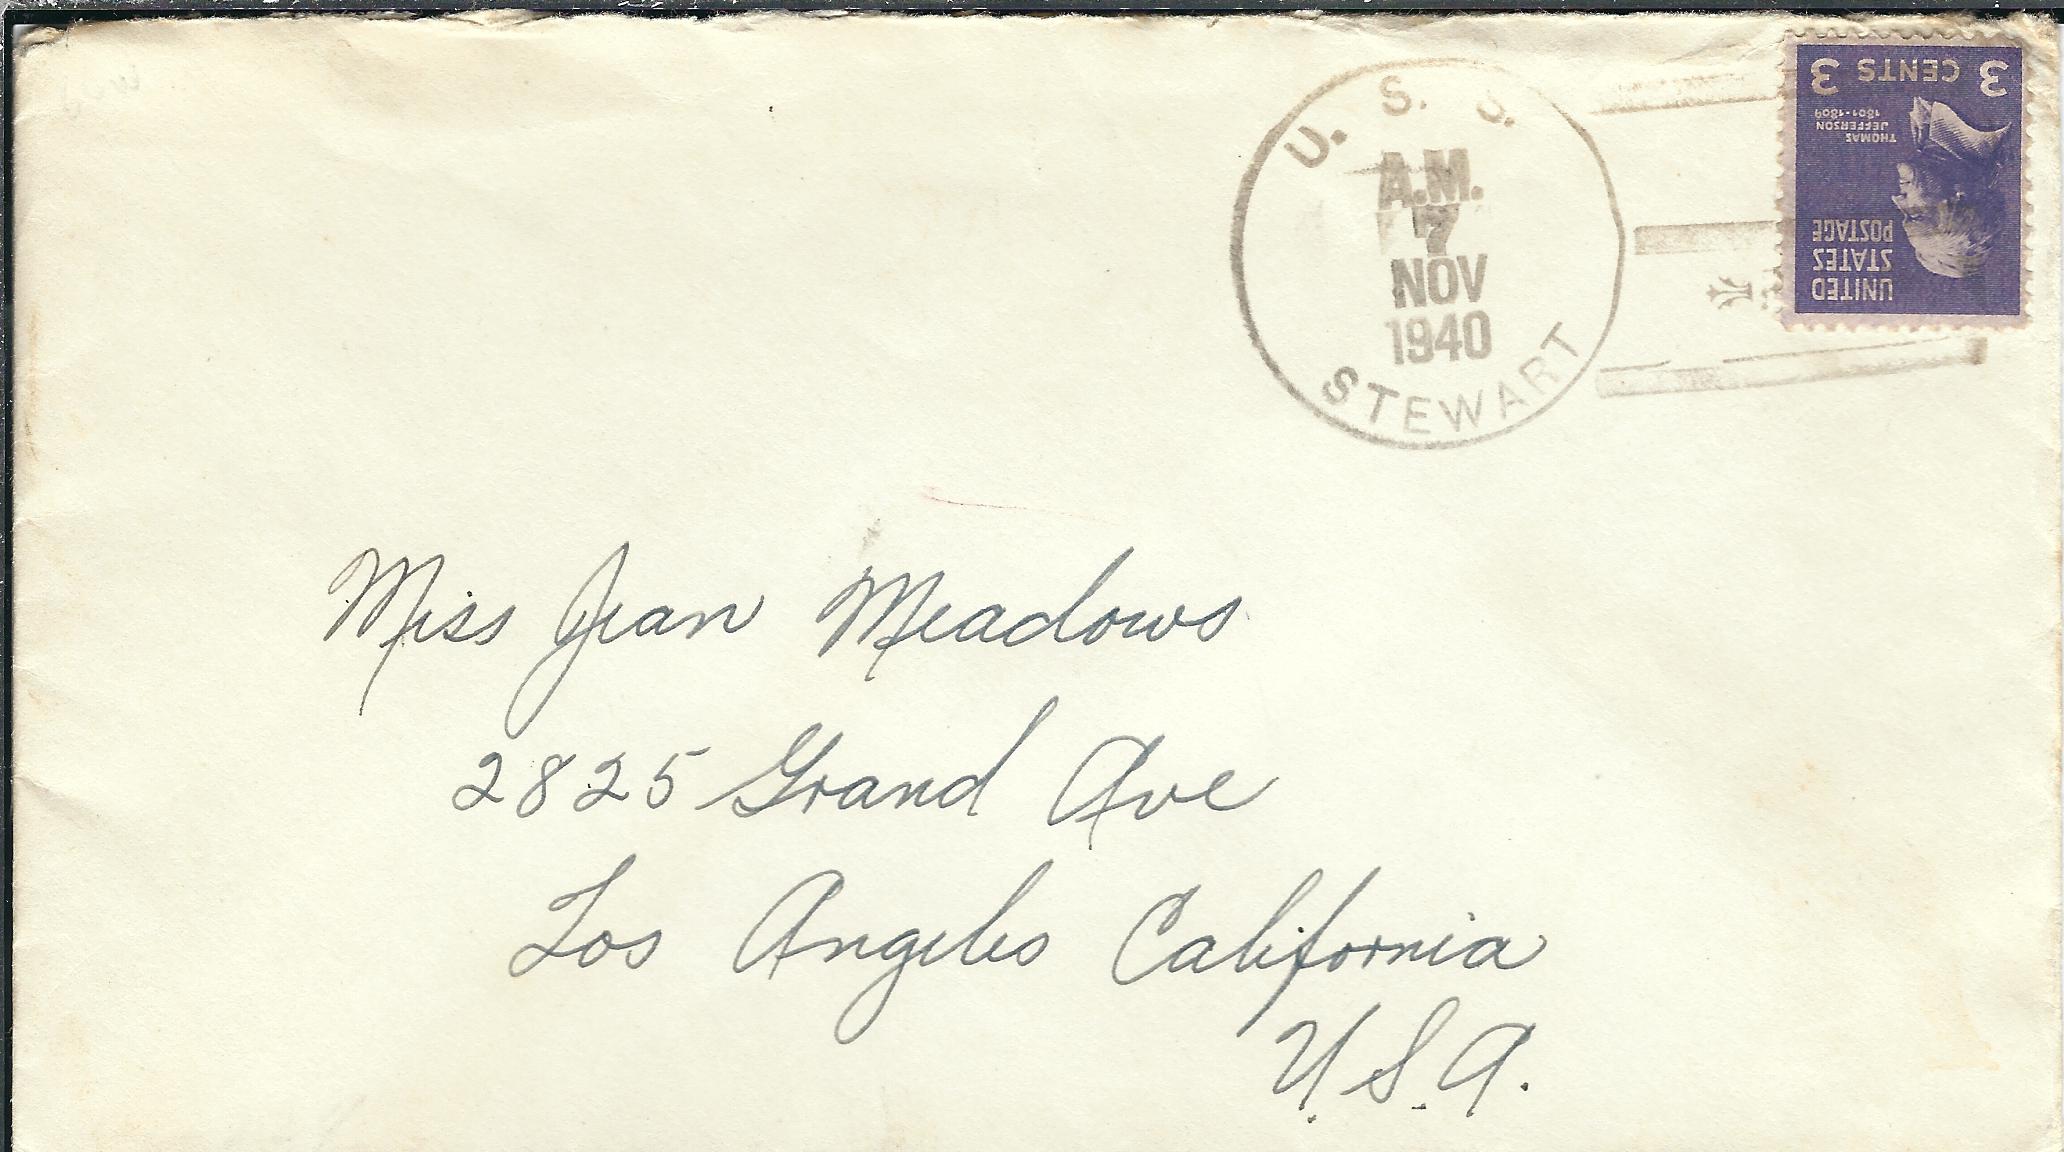 U. S. S.
A.M.
7
NOV
1940
STEWART
3 CENTS 3
THOMAS
JEFFERSON
1801-1809
UNITED
STATES
POSTAGE
Miss Jean Meadows
2825 Grand Ave
Los Angeles California
U.S.A.